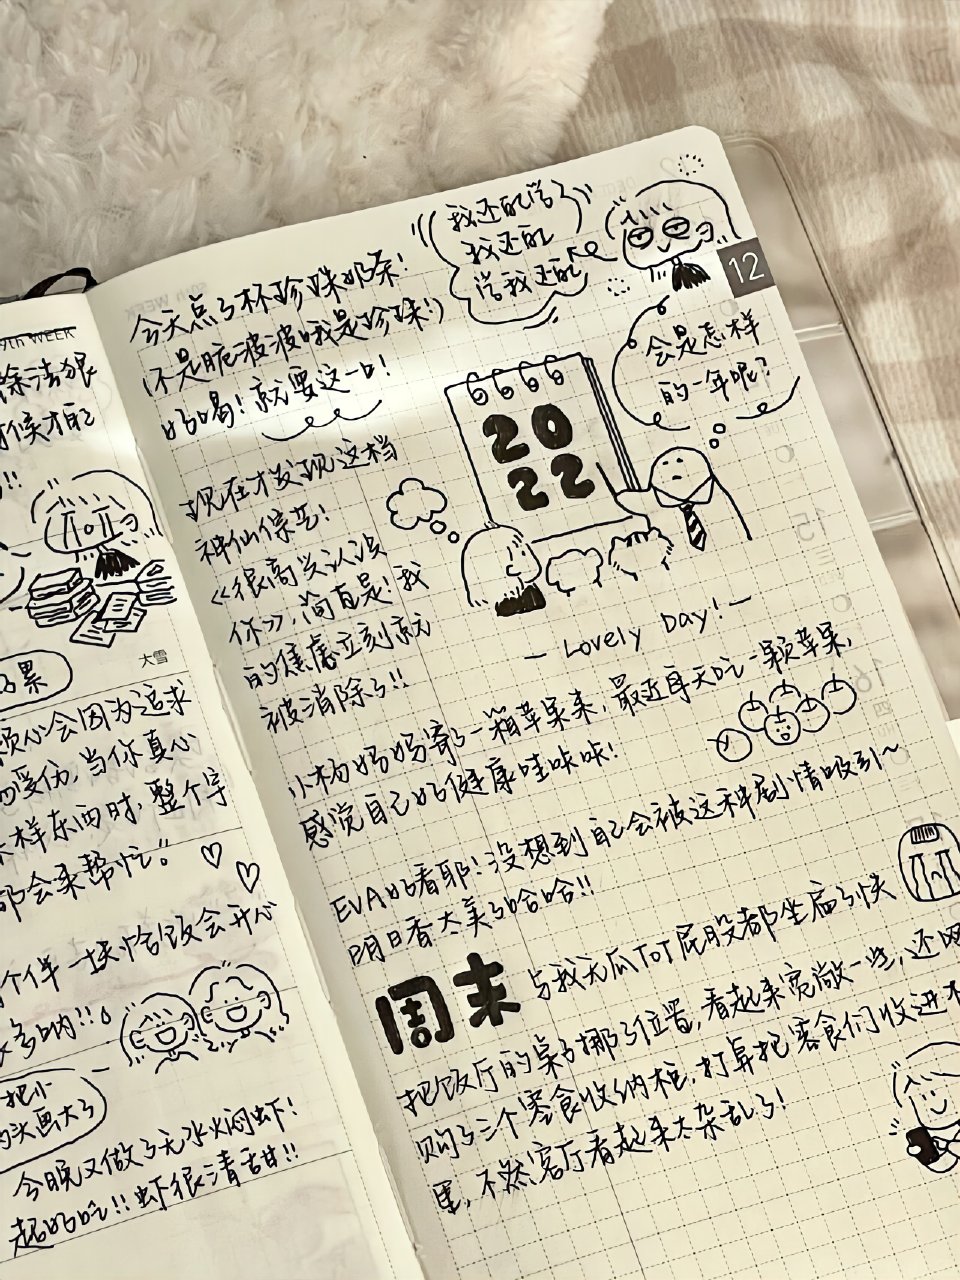 9th WEEK
除法狠
时候才能
!!
大雪
累
烦心会因为追求
而受伤,当你真心
样东西时,整个宇
都会来帮忙。
个伴一块恰饭会开心
多呐!!
把小
的头画大了
今晚又做了无水焖虾!
起好吃!!虾很清甜!!
12
我还能学了
我还能
学我还能
今天点了杯珍珠奶茶!
(不是脆波波哦是珍珠!)
好喝!就要这一口!
会是怎样
的一年呢?
20
22
现在才发现这档
神仙综艺!
《很高兴认识
你》,简直是!我
的焦虑立刻就
被消除了!!
— Lovely Day! —
小杨妈妈寄了一箱苹果来,最近每天吃一颗苹果,
感觉自己好健康哇咔咔!
EVA好看耶!没想到自己会被这种剧情吸引~
明日香太美了哈哈!!
周末
与我无瓜ToT屁股都坐扁了快
把饭厅的桌子挪了位置,看起来宽敞一些,还网
购了三个零食收纳柜,打算把零食们收进
里,不然客厅看起来太杂乱了!